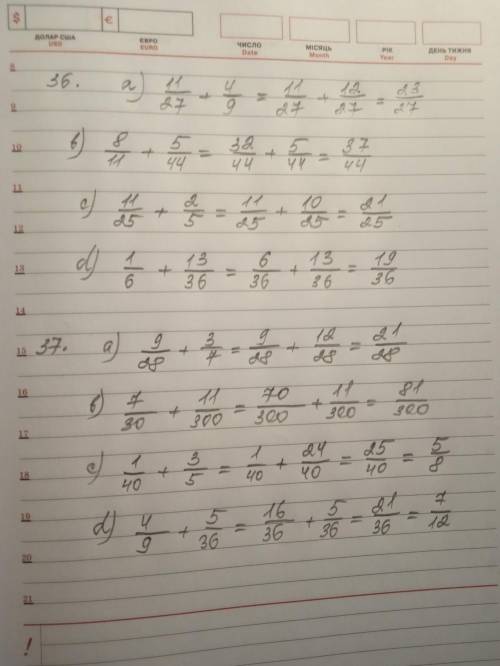 $ €
ДОЛАР США ЄВРО ЧИСЛО МІСЯЦЬ РІК ДЕНЬ ТИЖНЯ
USD EURO Date Month Year Day
8
36. a) 11/27 + 4/9 = 11/27 + 12/27 = 23/27
9
10 b) 8/11 + 5/44 = 32/44 + 5/44 = 37/44
11
c) 11/25 + 2/5 = 11/25 + 10/25 = 21/25
12
13 d) 1/6 + 13/36 = 6/36 + 13/36 = 19/36
14
15 37. a) 9/28 + 3/7 = 9/28 + 12/28 = 21/28
16
b) 7/30 + 11/300 = 70/300 + 11/300 = 81/300
17
18 c) 1/40 + 3/5 = 1/40 + 24/40 = 25/40 = 5/8
19
d) 4/9 + 5/36 = 16/36 + 5/36 = 21/36 = 7/12
20
21
!